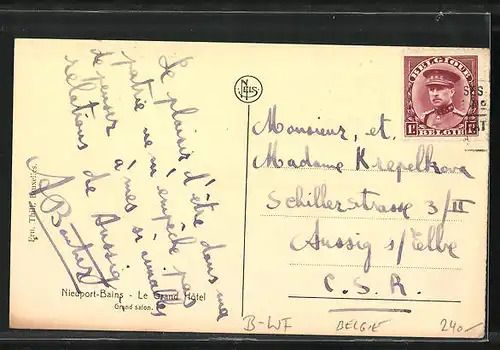 Le plaisir d'être dans ma
patrie ne m'empêche pas
de penser à mes si aimables
relations de Aussig
Ern. Thill, Bruxelles.
NELS
Nieuport-Bains - Le Grand Hôtel
Grand salon.
BELGIQUE
1F
1F
BELGIE
Monsieur, et,
Madame Krepelkova
Schillerstrasse 3/II
Aussig s/Elbe
C.S.R.
B-WF
BELGIE
240.-